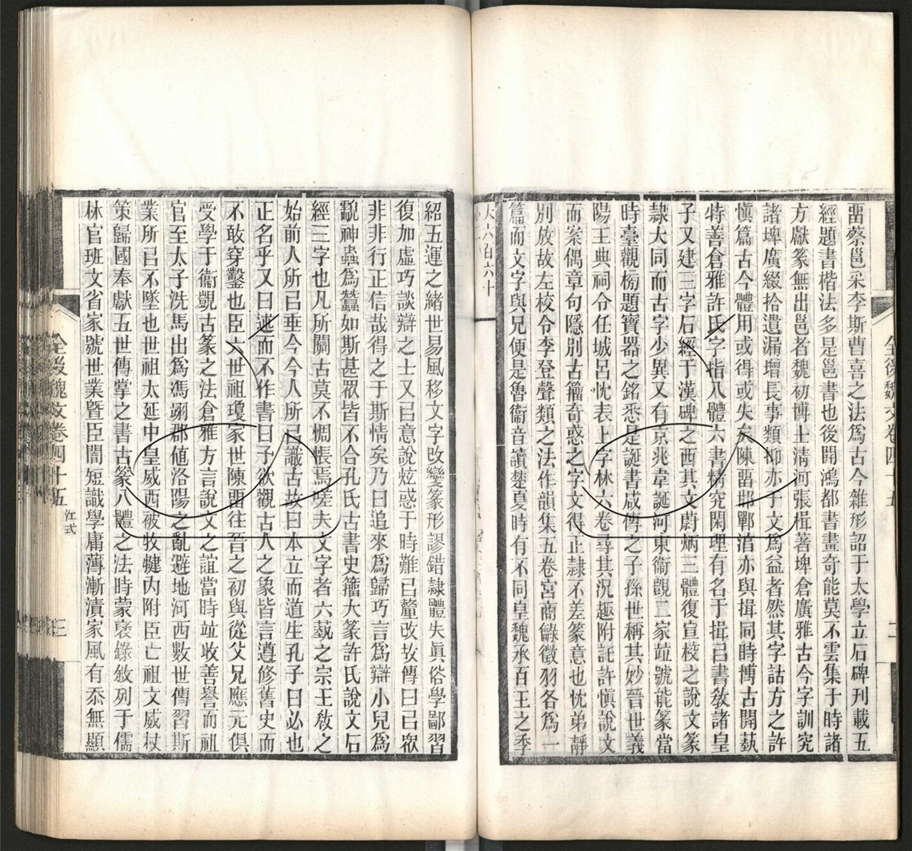 蔡邕采李斯曹喜之法爲古今雜形詔于太學立石碑刊載五
經題書楷法多是邕書也後開鴻都書畫奇能莫不雲集于時諸
方獻篆無出邕者魏初博士淸河張揖著埤倉廣雅古今字究
諸埤廣綴拾遺漏增長事類抑亦于文爲益者然其字詁方之許
愼篇古今體用或得或失矣陳畱邯鄲淳亦與揖同時博古開藝
特善倉雅許氏字指八體六書精究閑理有名于揖㠯書敎諸皇
子又建三字石經于漢碑之西其文蔚炳三體復宣校之說文篆
隸大同而古字少異又有京兆韋誕河東衞覬二家竝號能篆當
時臺觀榜題寶器之銘悉是誕書咸傳之子孫世稱其妙晉世義
陽王典祠令任城呂忱表上字林六卷尋其況趣附託許愼說文
而案偶章句隱別古籀奇惑之字文得正隸不差篆意也忱弟靜
別放故左校令李登聲類之法作韻集五卷宮商龣徵羽各爲一
篇而文字與兄便是魯衞音讀楚夏時有不同皇魏承百王之季
大六百六十
全後魏文卷四十五
二
紹五運之緒世易風移文字改變篆形謬錯隸體失眞俗學鄙習
復加虛巧談辯之士又㠯意說炫惑于時難㠯釐改故傳曰㠯眾
非非行正信哉得之于斯情矣乃曰追來爲歸巧言爲辯小兒爲
䨲神蟲爲蠶如斯甚眾皆不合孔氏古書史籀大篆許氏說文石
經三字也凡所關古莫不惆悵焉嗟夫文字者六蓺之宗王敎之
始前人所㠯垂今今人所㠯識古故曰本立而道生孔子曰必也
正名乎又曰述而不作書曰予欲觀古人之象皆言遵修舊史而
不敢穿鑿也臣六世祖瓊家世陳畱往晉之初與從父兄應元俱
受學于衞覬古篆之法倉雅方言說文之誼當時竝收善譽而祖
官至太子洗馬出爲馮翊郡值洛陽之亂避地河西數世傳習斯
業所㠯不墜也世祖太延中皇威西被牧犍内附臣亡祖文威杖
策歸國奉獻五世傳掌之書古篆八體之法時蒙襃錄敘列于儒
林官班文省家號世業暨臣闇短識學庸薄漸漬家風有忝無顯
全後魏文卷四十五
江式
三